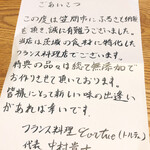 ごあいさつ
この度は笠間市にふるさと納税
を頂き、誠に有難うございました。
当店は茨城の食材に特化した
フランス料理店でございます。
特典の品々は総て無添加で
お作りさせて頂いております。
皆様にとって新しい味の出逢いが
あれば幸いです。
フランス料理 Tortue(トルテュ)
代表 中村